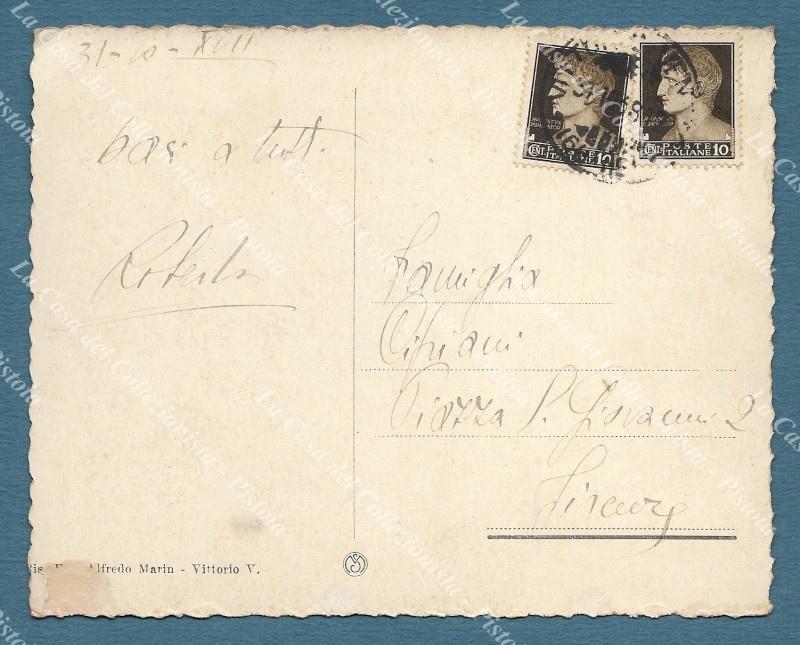 31-10-XVII
baci a tutti
Roberto
POSTE
ITALIANE
CENT. 10
POSTE
ITALIANE 10
Famiglia
Cipriani
Piazza S. Giovanni 2
Firenze
Ris. Alfredo Marin - Vittorio V.
La Casa del Collezionista - Pistoia